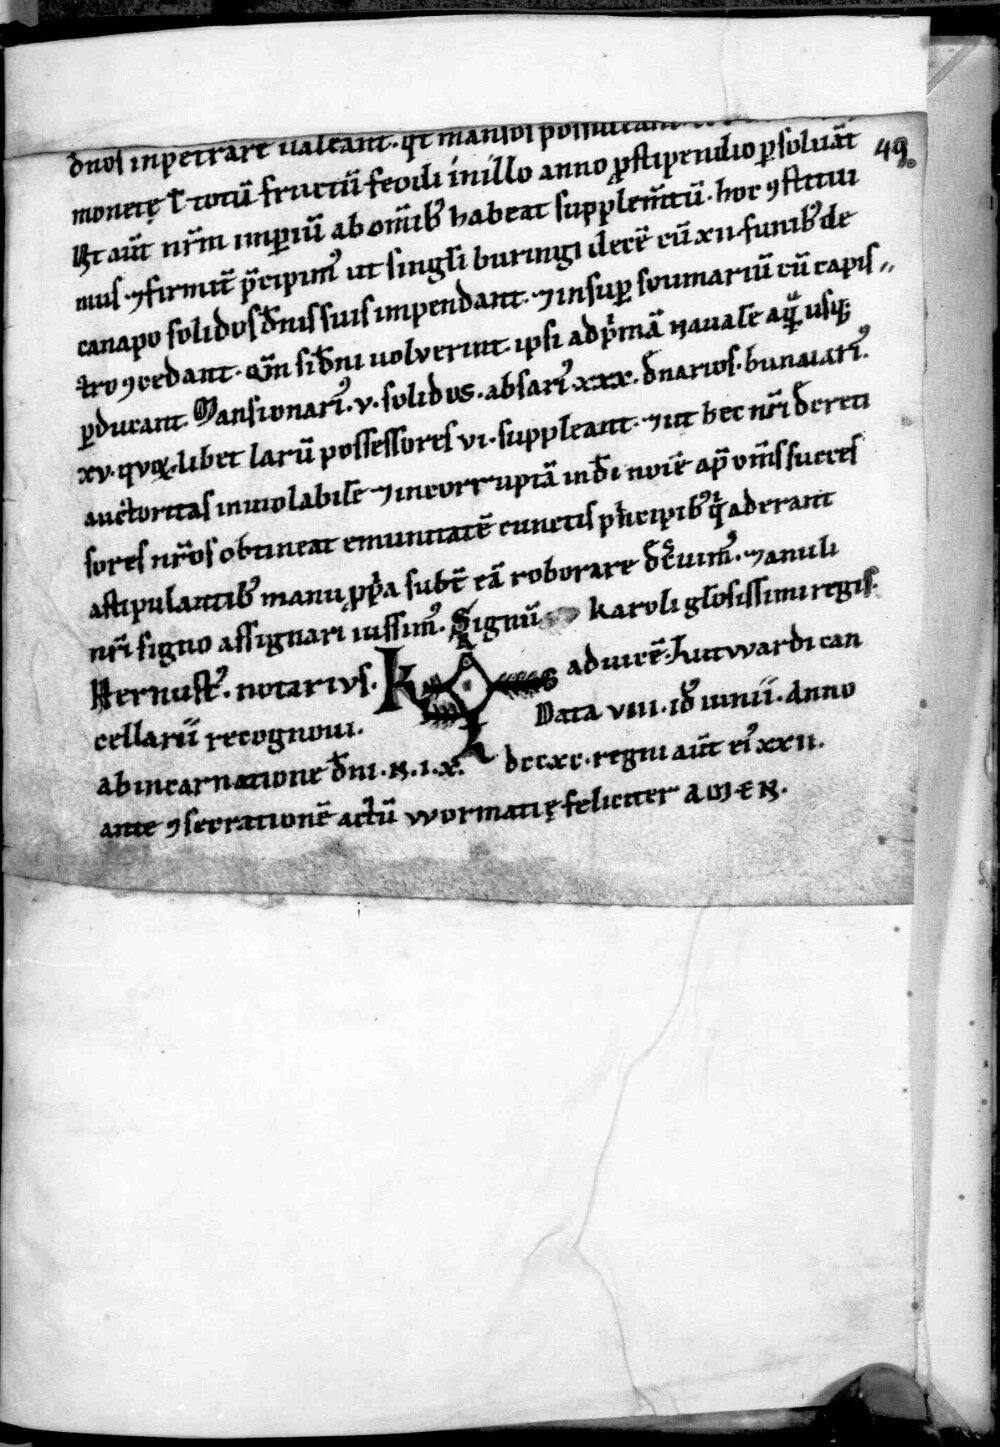 dños inpetrare ualeant· qt mansos
monetę ł totũ fructũ feodi inillo anno ꝓstipendio ꝑsoluãt 49.
Et aũt nr̃m imꝑiũ ab om̃ibꝰ habeat supplem̃tũ· hoc ꝯstitui
mus· ⁊firmit̃ p̃cipimꝰ ut singłi buringi decẽ cũ xii· funibꝰ de
canapo solidos dñis suis impendant· ⁊insuꝑ soumariũ cũ capis„
tro ꝯcedant· Qñ si dñi uolverint ipsi adpͥmã nauale aqͣ̃ usqꝫ
ꝑducant. Mansionariꝰ· v· solidos· absariꝰ· xxx· dñarios· bunaiariꝰ·
xv· quoꝝ·libet larũ possessores vi· suppleant· ⁊ut hec nr̃i decreti
auctoritas inuiolabilẽ ⁊incorruptã in di noĩe ap̃ om̃s succes
sores nr̃os obtineat emunitatẽ cunctis pͥncipibꝰ qͥ aderant
astipulantibꝰ manu ꝓpͥa subt̃ eã roborare dc̃reuimꝰ· ⁊anuli
nr̃i signo assignari iussimꝰ· Signũ karoli głosissimi regis·
Hernustꝰ· notarivs· K A R L S ad uicẽ· Luitwardi can
cellarii recognoui· Data viii· idꝰ iunii· Anno
ab incarnatione dñi· n·i·x· dccxc· regni aũt eiꝰ xxii·
ante ꝯsecrationẽ actũ wormatię· feliciter Amen·